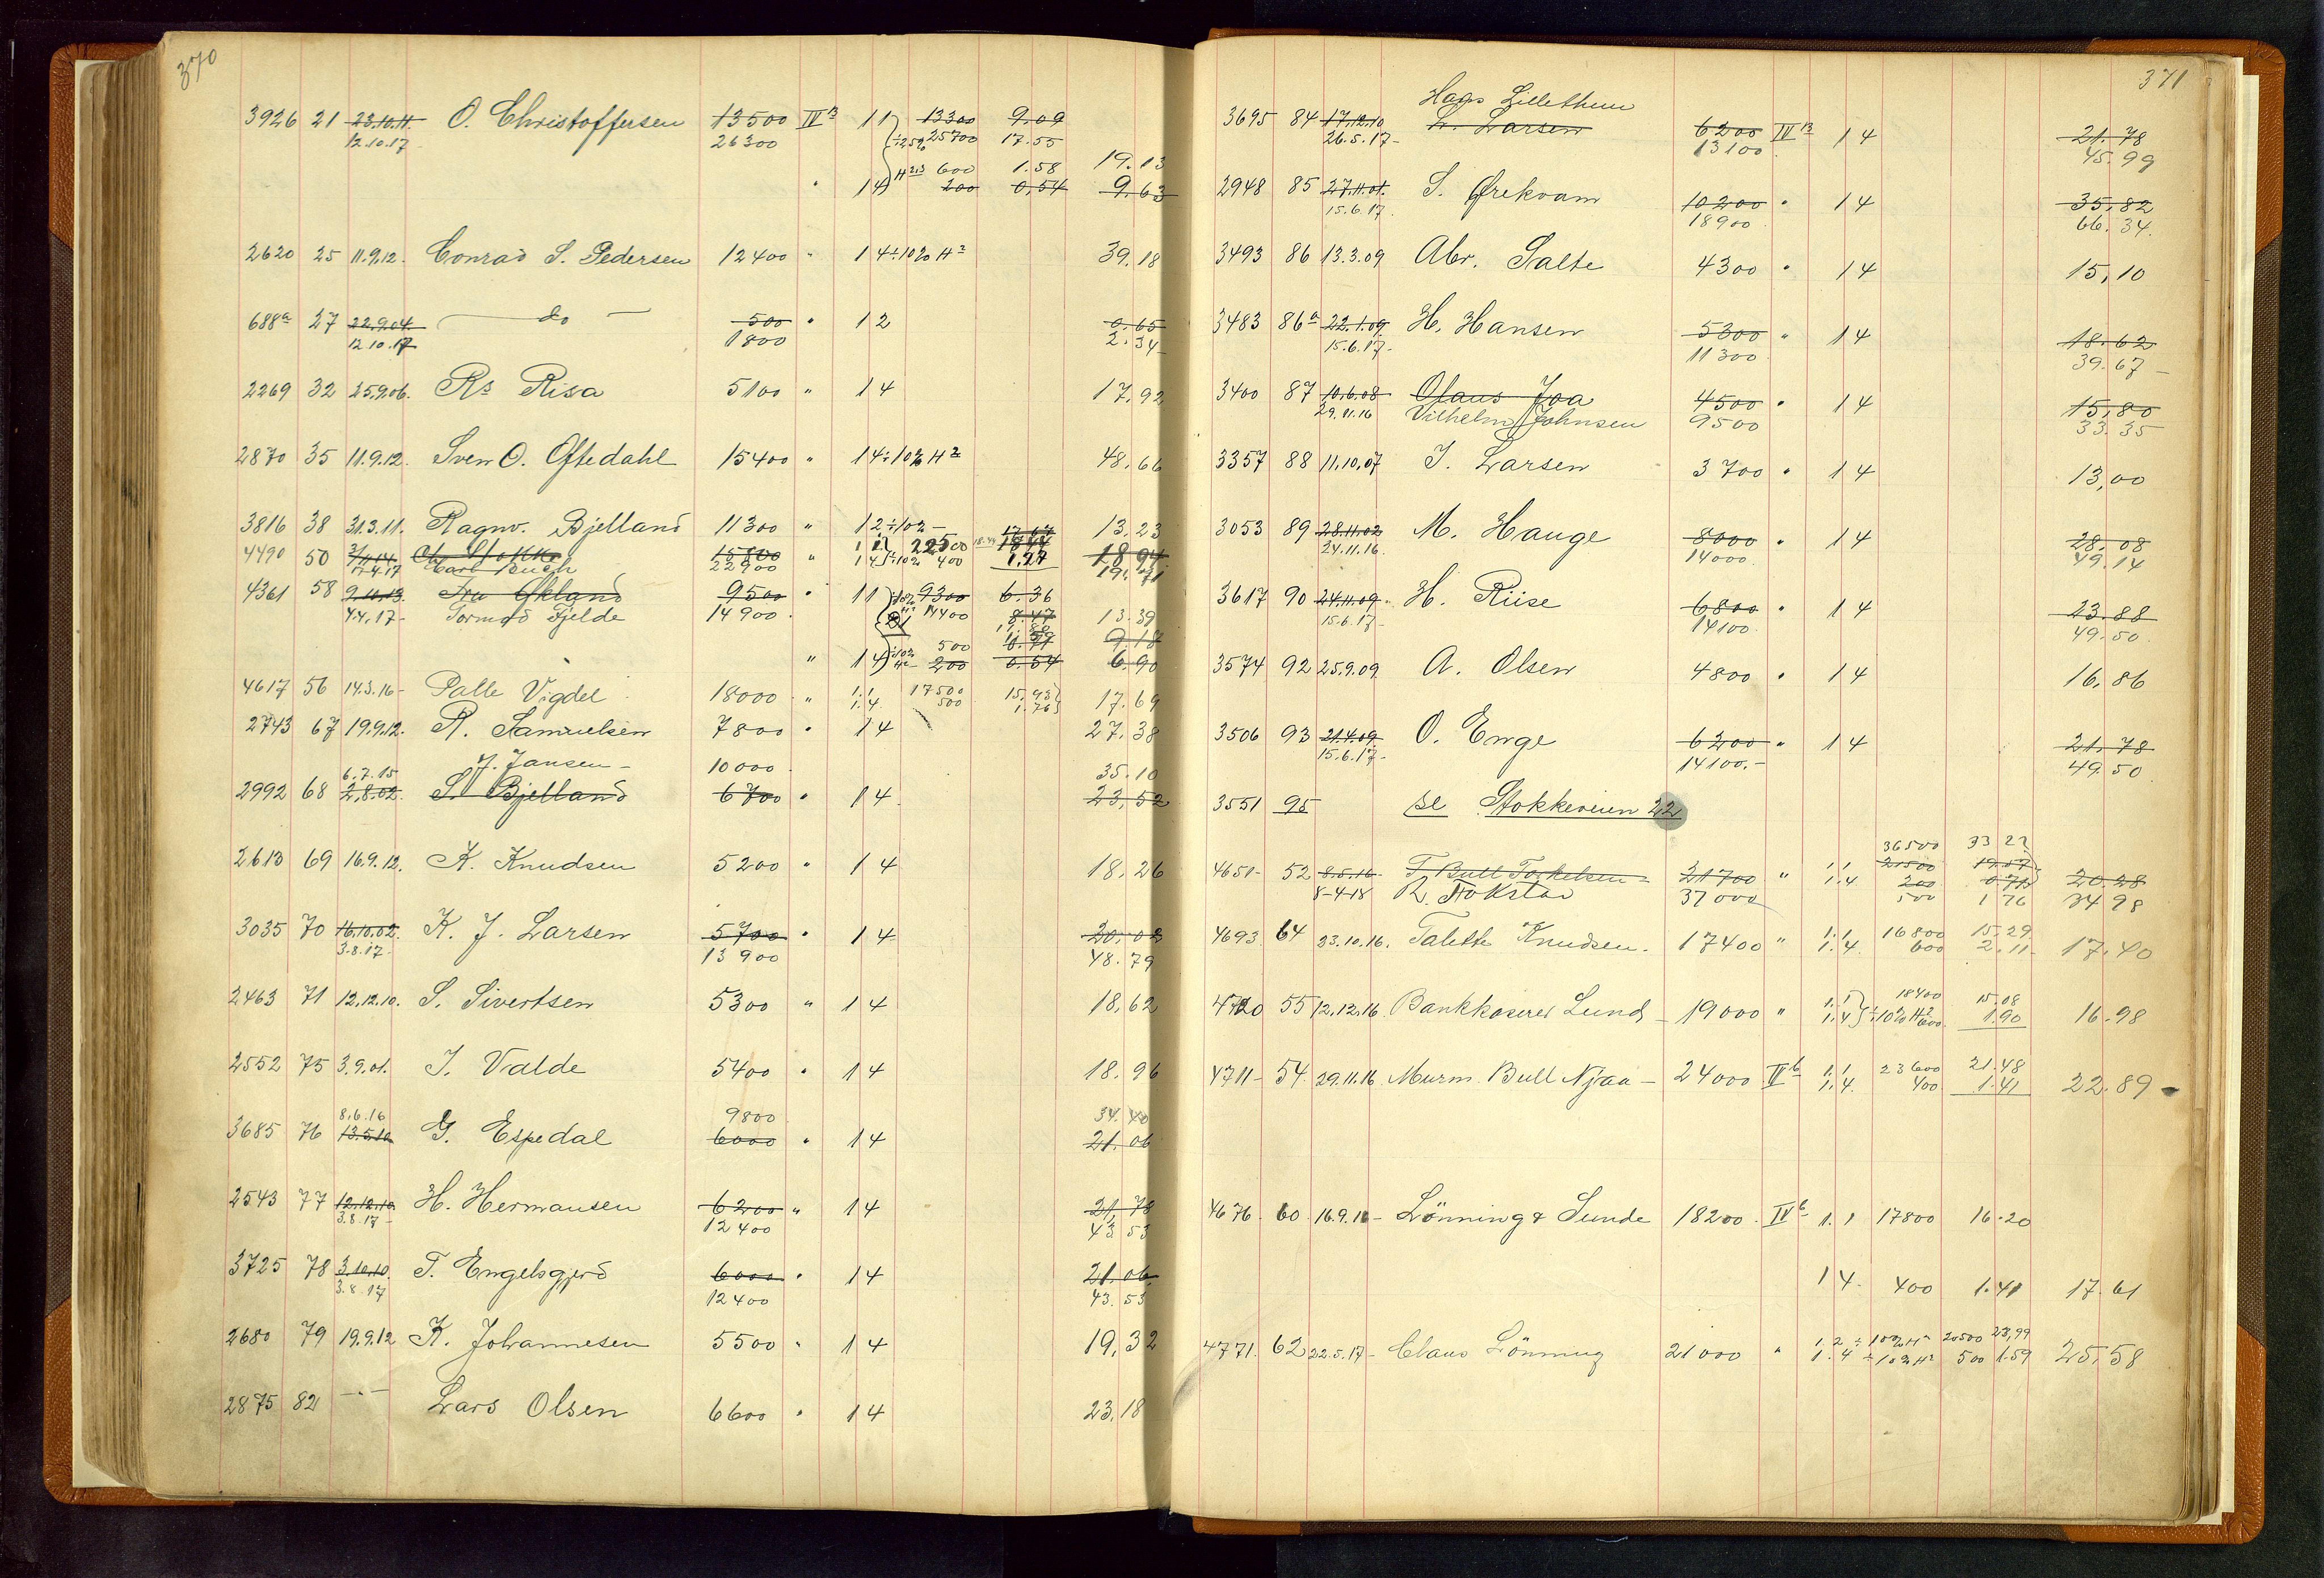 370
3926 21 23.10.11. O. Christoffersen 13500 IV B 11 13300 9.09
12.10.17 26300 ÷25% 25700 17.55
600 1.58 19.13
" 14 200 0,54 9.63
2620 25 11.9.12. Conrad S. Pedersen 12400 " 14 ÷ 10% H2 39.18
688a 27 22.9.04. do 500 " 12 0.65
12.10.17 1800 2.34
2269 32 25.9.06. Rs Risa 5100 " 14 17,92
2870 35 11.9.12. Sven O. Oftedahl 15400 " 14 ÷ 10% H2 48,66
3816 38 31.3.11. Ragnv. Bjelland 11300 " 12 ÷ 10% 13,23
4490 50 15800 " 11 22500
17.4.17 Carl 22900 14 ÷ 10% 400 1.27 18.94
19.71
4361 58 9.10.13. Fru Økland 9500 " 11 9300 6.36
4.4.17 Tormod Fjelde 14900 14400 8.47 13.39
500 9.18
" 14 200 0.54 6.90
4617 56 14.3.16 Palle Vigdel 18000 " 1.1 17500 15,93
1.4 500 1.76 17.69
2743 67 19.9.12. R. Samuelsen 7800 " 14 27,38
6.7.15 J. Jansen 10000 35.10
2992 68 2.8.02. S. Bjelland 6700 " 14 23,52
2613 69 16.9.12. K. Knudsen 5200 " 14 18,26
3035 70 16.10.02. K. J. Larsen 5700 " 14 20,02
3.8.17 13900 48.79
2463 71 12.12.10. S. Sivertsen 5300 " 14 18,62
2552 75 3.9.01. J. Valde 5400 " 14 18,96
8.6.16 9800 34.40
3685 76 13.5.10 G. Espedal 6000 " 14 21.06
2543 77 12.12.10 H. Hermansen 6200 " 14 21,78
3.8.17 12400 43.53
3725 78 3.10.10. T. Engelsgjerd 6000 " 14 21.06
3.8.17 12400 43.53
2680 79 19.9.12 K. Johannesen 5500 " 14 19,32
2875 82 — " — Lars Olsen 6600 " 14 23,18
371
Hans Lillethun
3695 84 17.12.10 L. Larsen 6200 IV B 14 21.78
26.5.17 13100 45.99
2948 85 27.11.01. S. Ørekvam 10200 " 14 35,82
15.6.17. 18900 66.34.
3493 86 13.3.09 Abr. Salte 4300 " 14 15,10
3483 86a 22.1.09. H. Hansen 5300 " 14 18.62
15.6.17 11300 39.67
3400 87 10.6.08 Olaus Joa 4500 " 14 15,80
29.11.16 Vilhelm Johnsen 9500 33.35
3357 88 11.10.07 J. Larsen 3700 " 14 13,00
3053 89 28.11.02 M. Hauge 8000 " 14 28,08
24.11.16. 14000 49.14
3617 90 24.11.09. H. Riise 6800 " 14 23.88
15.6.17 14100 49.50
3574 92 25.9.09 A. Olsen 4800 " 14 16,86
3506 93 21.4.09. O. Enge 6200 " 14 21,78
15.6.17 14100.- 49.50
3551 95 se Stokkeveien 22
36500 33 22
4651 52 8.5.16 T. Bull Torkelsen 21700 " 1.1 21500 19.57
8-4-18 R. Stokstad 37000 1.4 200 0 71 20.28
500 1 76 34 98
4693. 64 23.10.16. Talette Knudsen. 17400 " 1.1 16800 15.29
1.4. 600 2.11 17.40
4720 55 12.12.16. Bankkaserer Lund 19000 " 1.1 18400 15.08
1.4 ÷ 10% H2 600. 1.90 16.98
4711 54. 29.11.16 Murm. Bull Njaa 24000 1.1 23600 21.48
1.4. 400 1.41 22.89
4676 60. 16.9.16 Lönning & Sunde 18200. IV b 1.1 17800 16.20
1 4. 400 1.41 17.61
4771. 62 22.5.17 Claus Lönning 21000 " 1.2 ÷ 10% H2 20500 23,99
1.4 ÷ 10% H2 500 1.59 25.58